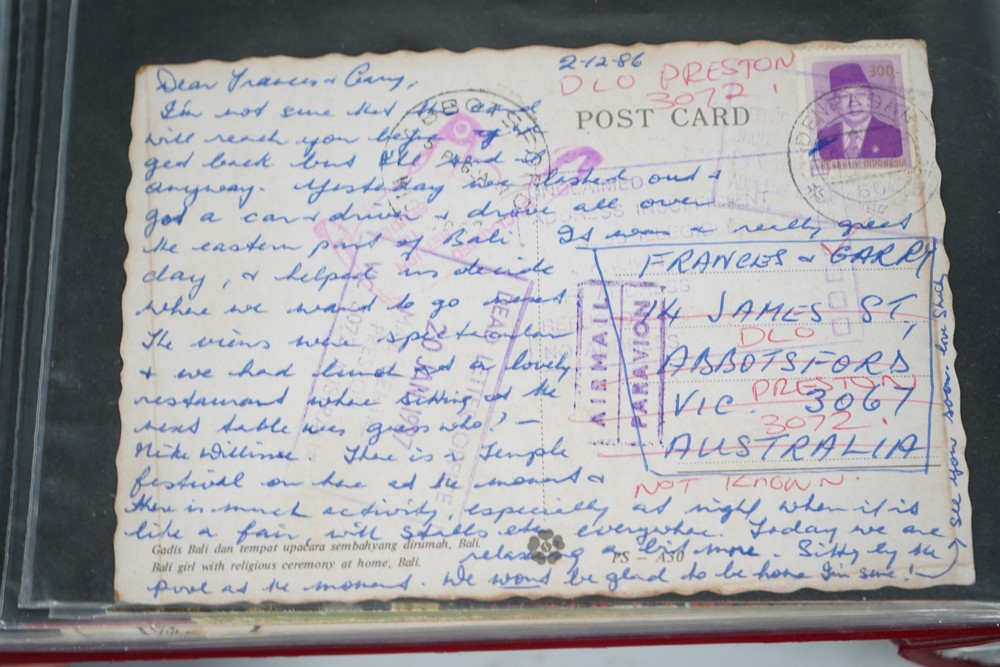 2-12-86
Dear Frances & Garry,
I'm not sure that the card
will reach you before
get back but I'll send it
anyway. Yesterday we lashed out &
got a car & driver & drove all over
the eastern part of Bali. It was a really great
day, & helped us decide
where we want to go next
The views were spectacular
& we had lunch at a lovely
restaurant where sitting at the
next table was guess who? -
Mike . There is a Temple
festival on here at the moment &
there is much activity, especially at night when it is
like a fair with stalls etc everywhere. Today we are
relaxing a bit more. Sitting by the
pool at the moment. We wont be glad to be home I'm sure!
see you soon love
Gadis Bali dan tempat upacara sembahyang dirumah, Bali.
Bali girl with religious ceremony at home, Bali.
PS - A30
POST CARD
DLO PRESTON
3072!
300,-
REPUBLIK INDONESIA
DENPASAR
ABBOTSFORD
FRANCES & GARRY
14 JAMES ST,
ABBOTSFORD
VIC. 3067
AUSTRALIA
DLO
PRESTON
3072.
NOT KNOWN.
AIRMAIL
PAR AVION
UNCLAIMED
ADDRESS INSUFFICIENT
DEAD LETTER OFFICE
20 JAN 1987